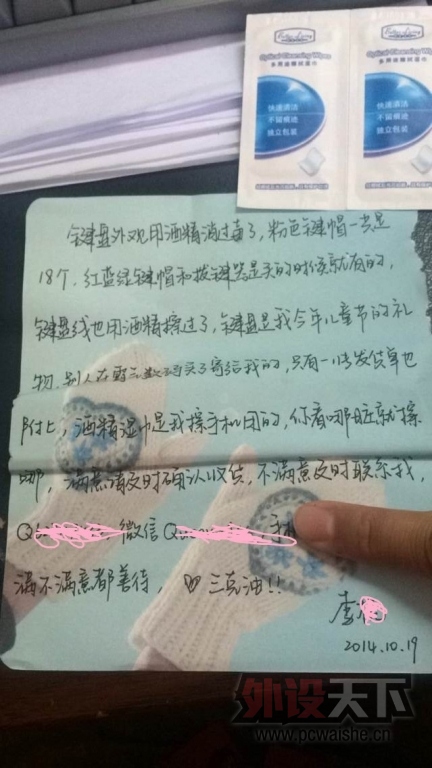 Optical Cleansing Wipes
多用途镜头湿巾
快速清洁
不留痕迹
独立包装
Optical Cleansing Wipes
多用途镜头湿巾
快速清洁
不留痕迹
独立包装
键盘外观用酒精消过毒了,粉色键帽一共是
18个,红蓝绿键帽和拔键器是买的时候就有的,
键盘线也用酒精擦过了,键盘是我今年儿童节的礼
物,别人在 买了寄给我的,只有一张发货单也
附上,酒精湿巾是我擦手机用的,你看哪脏就擦
哪,满意请及时确认收货,不满意及时联系我,
Q 微信Q 手
满不满意都善待,♡三克油!!
李
2014.10.19
外设天下
www.pcwaishe.cn